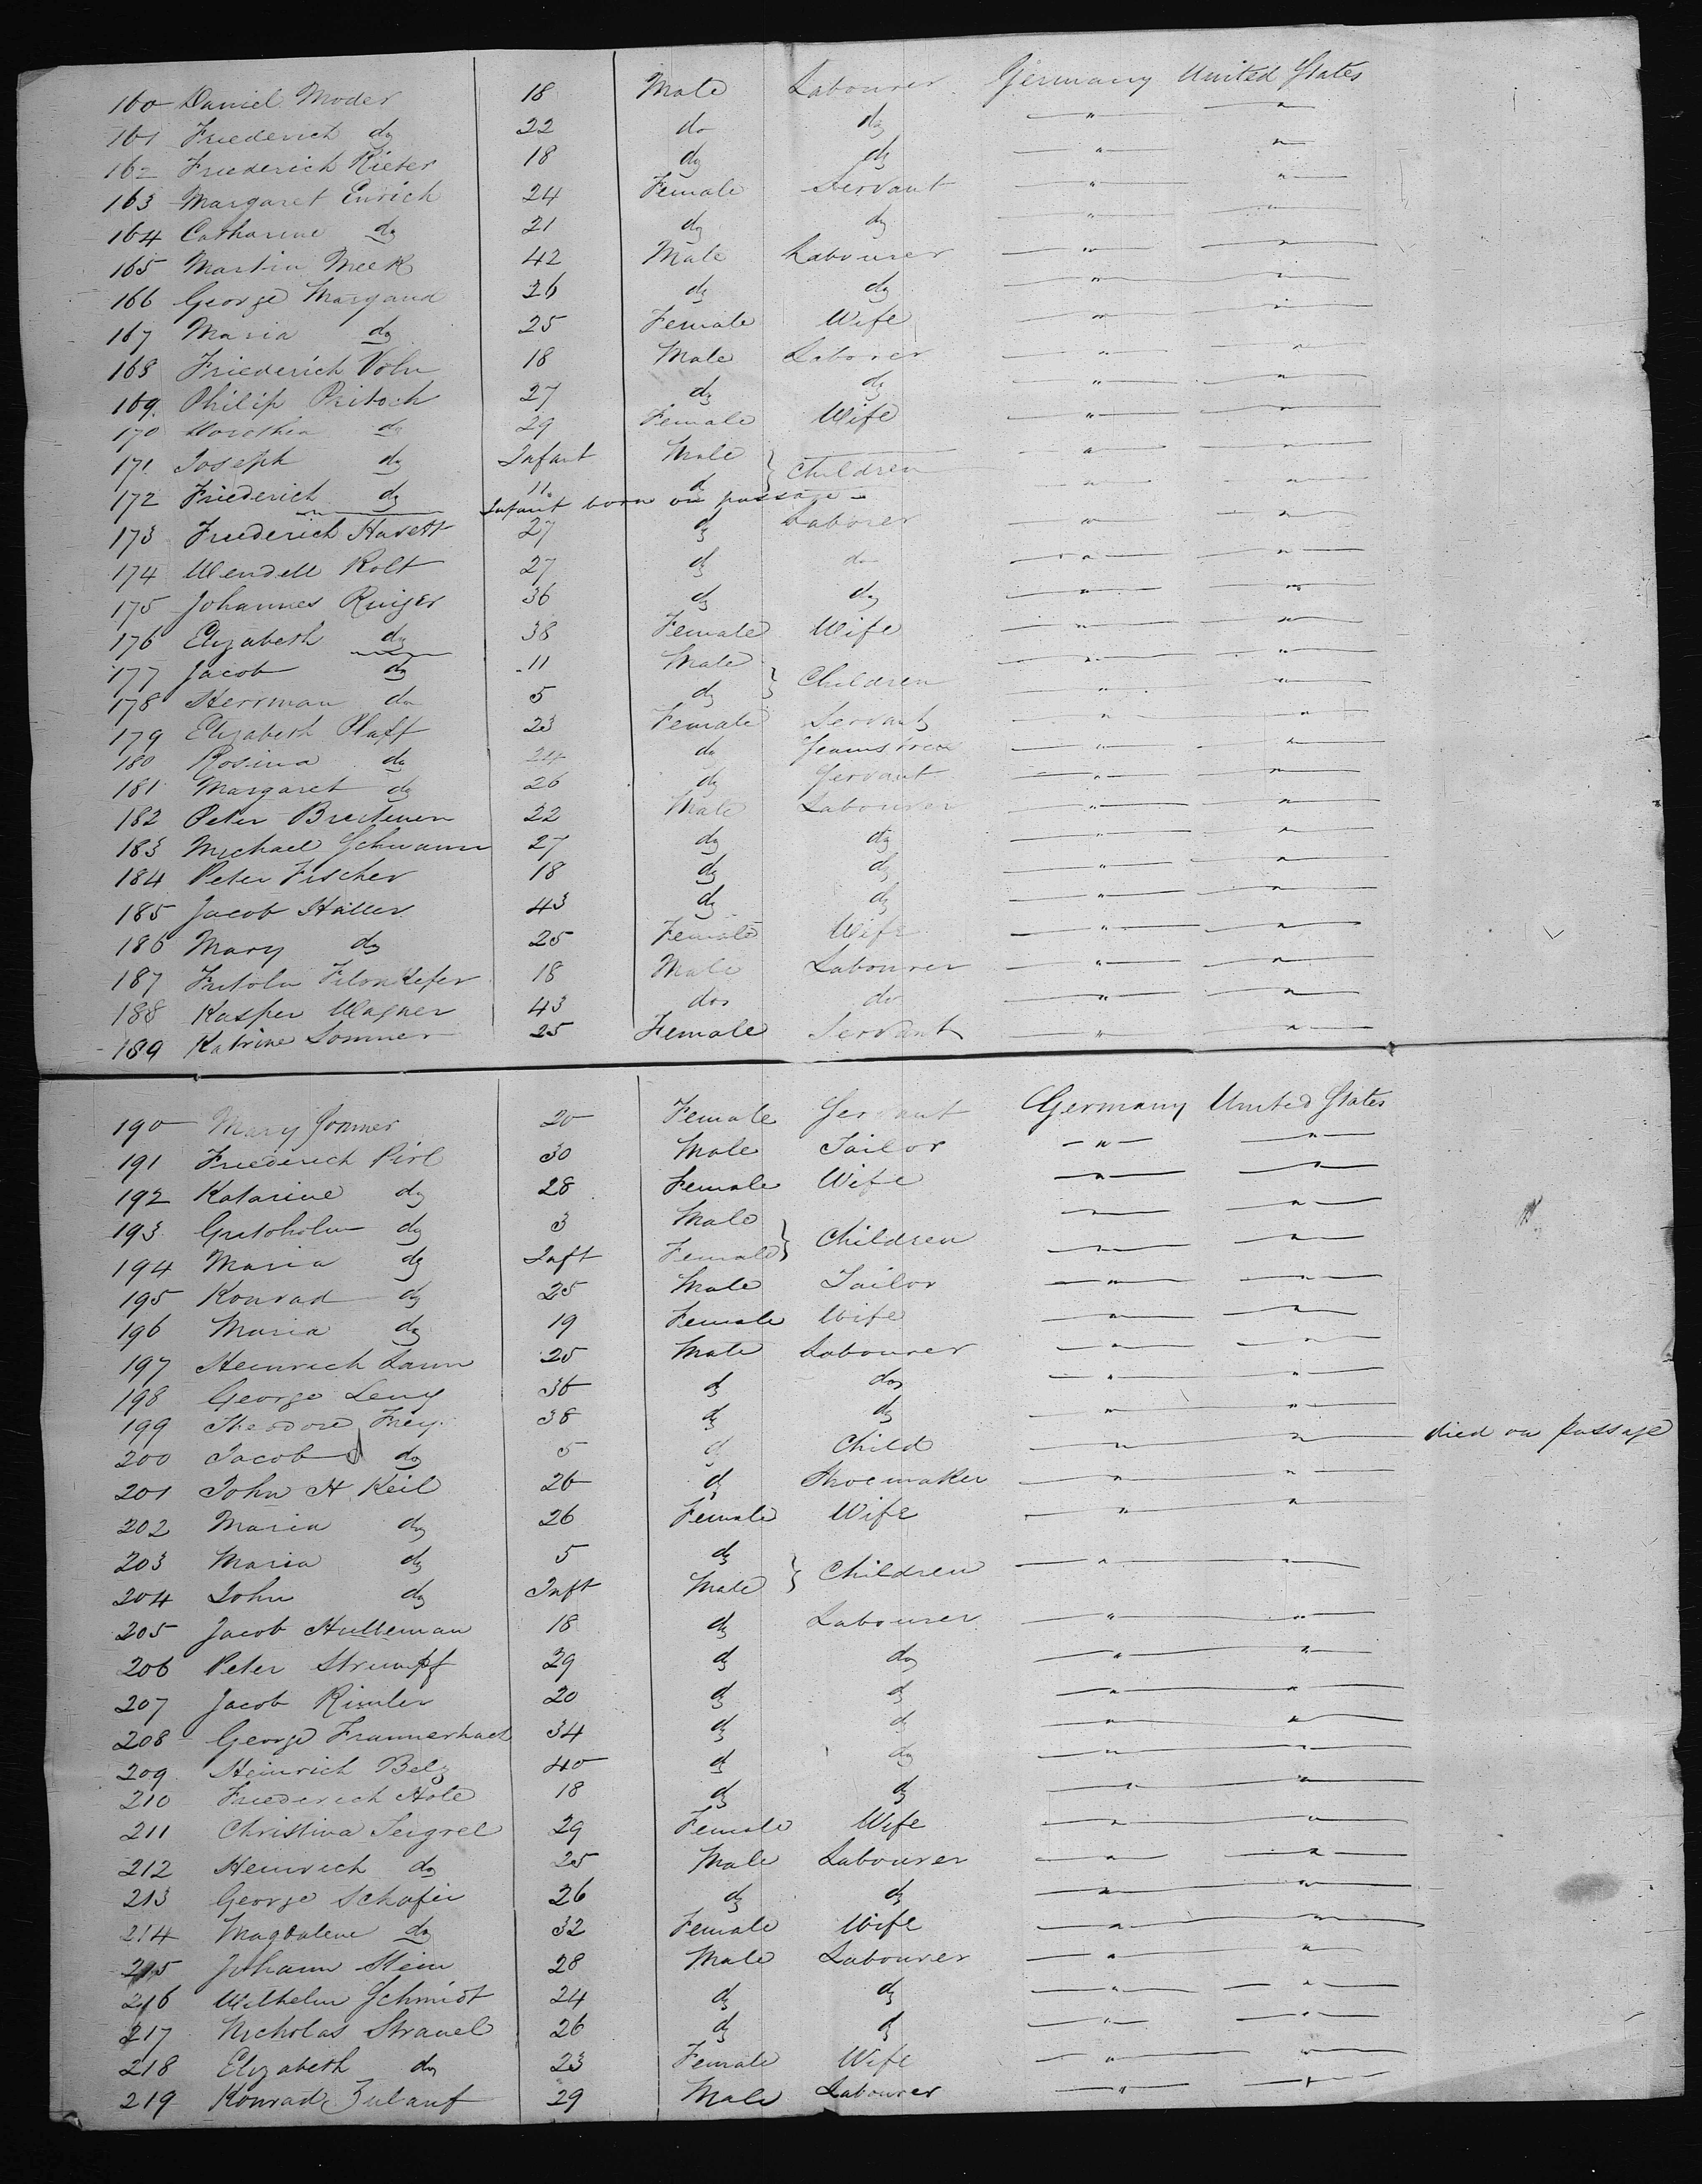 160 Daniel Moder 18 Male Labourer Germany United States
161 Friederich do 22 do do " "
162 Friederich Rieter 18 do do " "
163 Margaret Enrich 24 Female Servant " "
164 Catharine do 21 do do " "
165 Martin Meek 42 Male Labourer " "
166 George Margand 26 do do " "
167 Maria do 25 Female Wife " "
168 Friederich Voln 18 Male Laborer " "
169 Philip Pritoch 27 do do " "
170 Dorothia do 29 Female Wife " "
171 Joseph do Infant Male } Children " "
172 Friederich do 11 d " "
Infant born on passage
173 Friederich Havett 27 do Laborer " "
174 Wendell Rolt 27 do do " "
175 Johannes Ruiger 36 do do " "
176 Elizabeth do 38 Female Wife " "
177 Jacob do 11 Male } Children " "
178 Herrman do 5 do " "
179 Elizabeth Plaff 23 Female Servant " "
180 Rosina do 24 do Seamstress " "
181 Margaret do 26 do Servant " "
182 Peter 22 Male Labourer " "
183 Michael Schwann 27 do do " "
184 Peter Fischer 18 do do " "
185 Jacob Häller 43 do do " "
186 Mary do 25 Female Wife " "
187 18 Male Labourer " "
188 Kasper Wagner 43 do do " "
189 Katrine Sommer 25 Female Servant " "
190 Mary Sommer 20 Female Servant Germany United States
191 Friederich Pirl 30 Male Tailor " "
192 Katarine do 28 Female Wife " "
193 do 3 Male } Children " "
194 Maria do Inft Female " "
195 Konrad do 25 Male Tailor " "
196 Maria do 19 Female Wife " "
197 Heinrich Laun 25 Male Labourer " "
198 George Leng 36 do do " "
199 Theodore Frey 38 do do " "
200 Jacob do 5 do Child " " died on passage
201 John H Keil 26 do Shoemaker " "
202 Maria do 26 Female Wife " "
203 Maria do 5 do } Children "
204 John do Inft Male
205 Jacob Hulleman 18 do Labourer " "
206 Peter Strumpf 29 do do " "
207 Jacob Rimler 20 do do " "
208 George 34 do do " "
209 Heinrich Belz 40 do do " "
210 Friederich Hole 18 do do " "
211 Christina Seigrel 29 Female Wife " "
212 Heinrich do 25 Male Labourer " "
213 George Schafer 26 do do " "
214 Magdalene do 32 Female Wife " "
215 Johann Stein 28 Male Labourer " "
216 Wilhelm Schmidt 24 do do " "
217 Nicholas Strauel 26 do do " "
218 Elizabeth do 23 Female Wife " "
219 Konrad Zulauf 29 Male Labourer " "